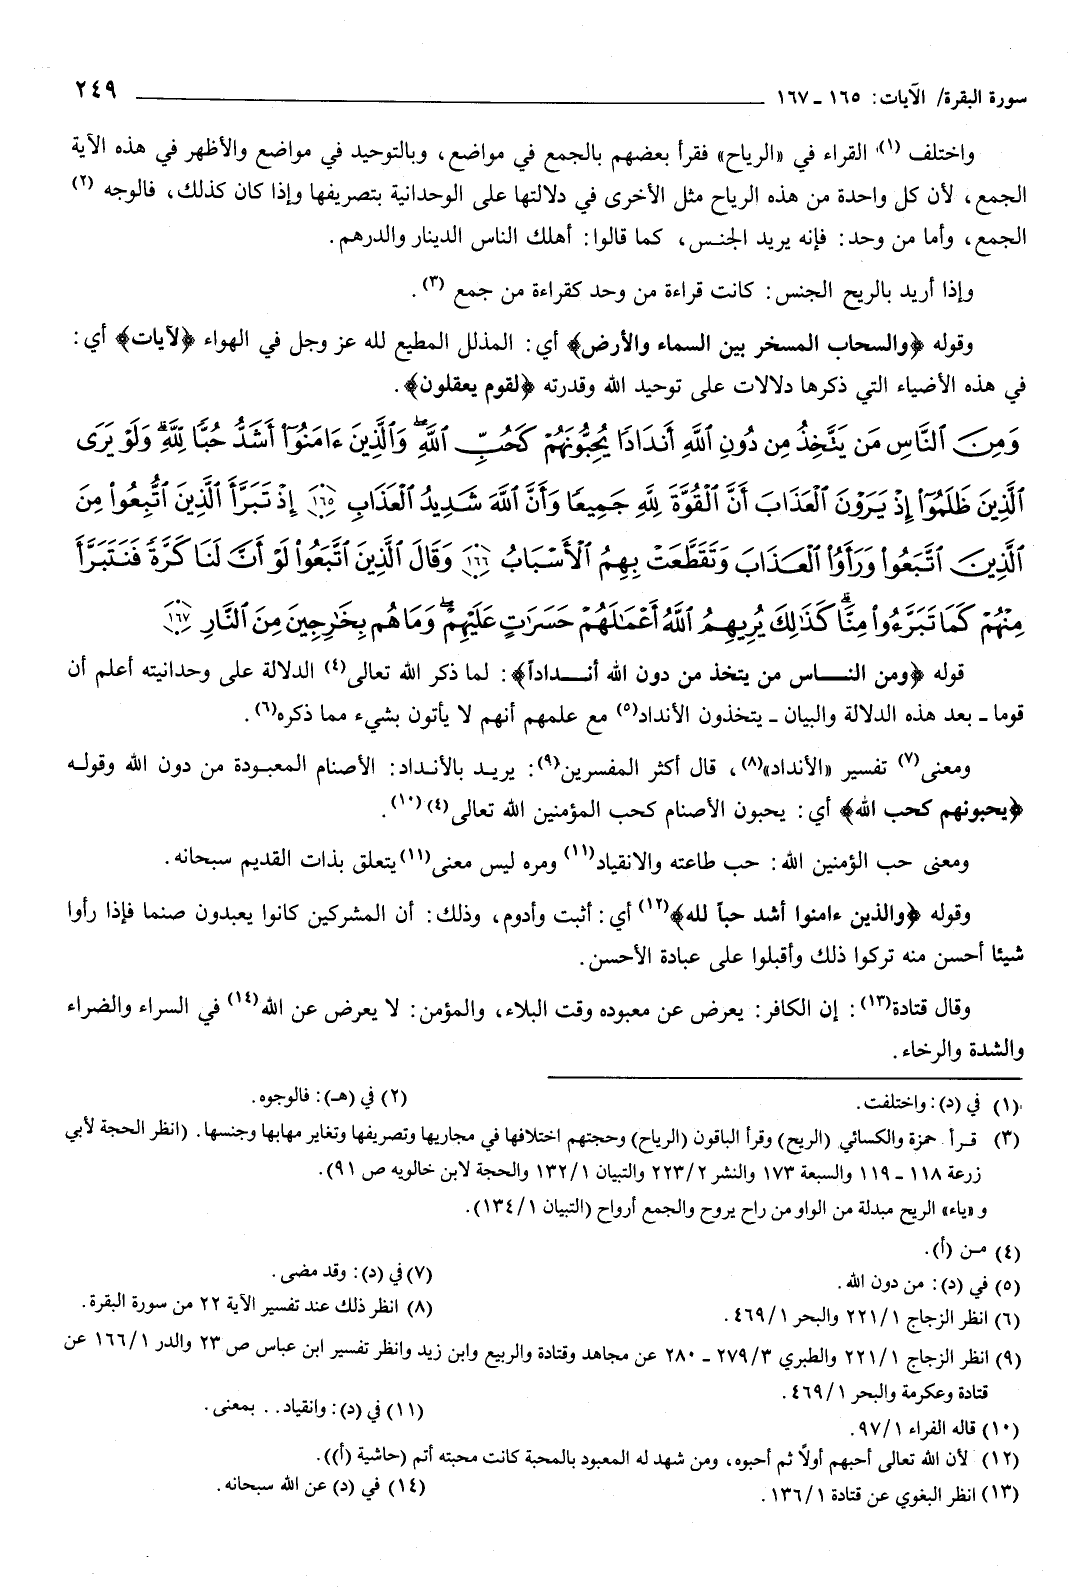 سورة البقرة/ الآيات: ١٦٥ ـ ١٦٧ ٢٤٩
واختلف (١) القراء في «الرياح» فقرأ بعضهم بالجمع في مواضع، وبالتوحيد في مواضع والأظهر في هذه الآية
الجمع، لأن كل واحدة من هذه الرياح مثل الأخرى في دلالتها على الوحدانية بتصريفها وإذا كان كذلك، فالوجه (٢)
الجمع، وأما من وحد: فإنه يريد الجنس، كما قالوا: أهلك الناس الدينار والدرهم.
وإذا أريد بالريح الجنس: كانت قراءة من وحد كقراءة من جمع (٣).
وقوله ﴿والسحاب المسخر بين السماء والأرض﴾ أي: المذلل المطيع لله عز وجل في الهواء ﴿لآيات﴾ أي:
في هذه الأضياء التي ذكرها دلالات على توحيد الله وقدرته ﴿لقوم يعقلون﴾.
وَمِنَ ٱلنَّاسِ مَن يَتَّخِذُ مِن دُونِ ٱللَّهِ أَندَادًا يُحِبُّونَهُمْ كَحُبِّ ٱللَّهِۖ وَٱلَّذِينَ ءَامَنُوٓا۟ أَشَدُّ حُبًّا لِّلَّهِۗ وَلَوْ يَرَى
ٱلَّذِينَ ظَلَمُوٓا۟ إِذْ يَرَوْنَ ٱلْعَذَابَ أَنَّ ٱلْقُوَّةَ لِلَّهِ جَمِيعًا وَأَنَّ ٱللَّهَ شَدِيدُ ٱلْعَذَابِ ١٦٥ إِذْ تَبَرَّأَ ٱلَّذِينَ ٱتُّبِعُوا۟ مِنَ
ٱلَّذِينَ ٱتَّبَعُوا۟ وَرَأَوُا۟ ٱلْعَذَابَ وَتَقَطَّعَتْ بِهِمُ ٱلْأَسْبَابُ ١٦٦ وَقَالَ ٱلَّذِينَ ٱتَّبَعُوا۟ لَوْ أَنَّ لَنَا كَرَّةً فَنَتَبَرَّأَ
مِنْهُمْ كَمَا تَبَرَّءُوا۟ مِنَّاۗ كَذَٰلِكَ يُرِيهِمُ ٱللَّهُ أَعْمَٰلَهُمْ حَسَرَٰتٍ عَلَيْهِمْۖ وَمَا هُم بِخَٰرِجِينَ مِنَ ٱلنَّارِ ١٦٧
قوله ﴿ومن النـــاس من يتخذ من دون الله أنـــداداً﴾: لما ذكر الله تعالى(٤) الدلالة على وحدانيته أعلم أن
قوما ـ بعد هذه الدلالة والبيان ـ يتخذون الأنداد(٥) مع علمهم أنهم لا يأتون بشيء مما ذكره(٦).
ومعنى(٧) تفسير «الأنداد»(٨)، قال أكثر المفسرين(٩): يريد بالأنداد: الأصنام المعبودة من دون الله وقوله
﴿يحبونهم كحب الله﴾ أي: يحبون الأصنام كحب المؤمنين الله تعالى(٤)(١٠).
ومعنى حب الؤمنين الله: حب طاعته والانقياد(١١) ومره ليس معنى(١١)يتعلق بذات القديم سبحانه.
وقوله ﴿والذين ءامنوا أشد حباً لله﴾(١٢) أي: أثبت وأدوم، وذلك: أن المشركين كانوا يعبدون صنما فإذا رأوا
شيئا أحسن منه تركوا ذلك وأقبلوا على عبادة الأحسن.
وقال قتادة(١٣): إن الكافر: يعرض عن معبوده وقت البلاء، والمؤمن: لا يعرض عن الله(١٤) في السراء والضراء
والشدة والرخاء.
(١) في (د): واختلفت. (٢) في (هـ): فالوجوه.
(٣) قرأ حمزة والكسائي (الريح) وقرأ الباقون (الرياح) وحجتهم اختلافها في مجاريها وتصريفها وتغاير مهابها وجنسها. (انظر الحجة لأبي
زرعة ١١٨ ـ ١١٩ والسبعة ١٧٣ والنشر ٢/ ٢٢٣ والتبيان ١/ ١٣٢ والحجة لابن خالويه ص ٩١).
و «ياء» الريح مبدلة من الواو من راح يروح والجمع أرواح (التبيان ١/ ١٣٤).
(٤) من (أ).
(٥) في (د): من دون الله. (٧) في (د): وقد مضى.
(٦) انظر الزجاج ١/ ٢٢١ والبحر ١/ ٤٦٩. (٨) انظر ذلك عند تفسير الآية ٢٢ من سورة البقرة.
(٩) انظر الزجاج ١/ ٢٢١ والطبري ٣/ ٢٧٩ ـ ٢٨٠ عن مجاهد وقتادة والربيع وابن زيد وانظر تفسير ابن عباس ص ٢٣ والدر ١/ ١٦٦ عن
قتادة وعكرمة والبحر ١/ ٤٦٩.
(١٠) قاله الفراء ١/ ٩٧. (١١) في (د): وانقياد.. بمعنى.
(١٢) لأن الله تعالى أحبهم أولاً ثم أحبوه، ومن شهد له المعبود بالمحبة كانت محبته أتم (حاشية (أ)).
(١٣) انظر البغوي عن قتادة ١/ ١٣٦. (١٤) في (د) عن الله سبحانه.